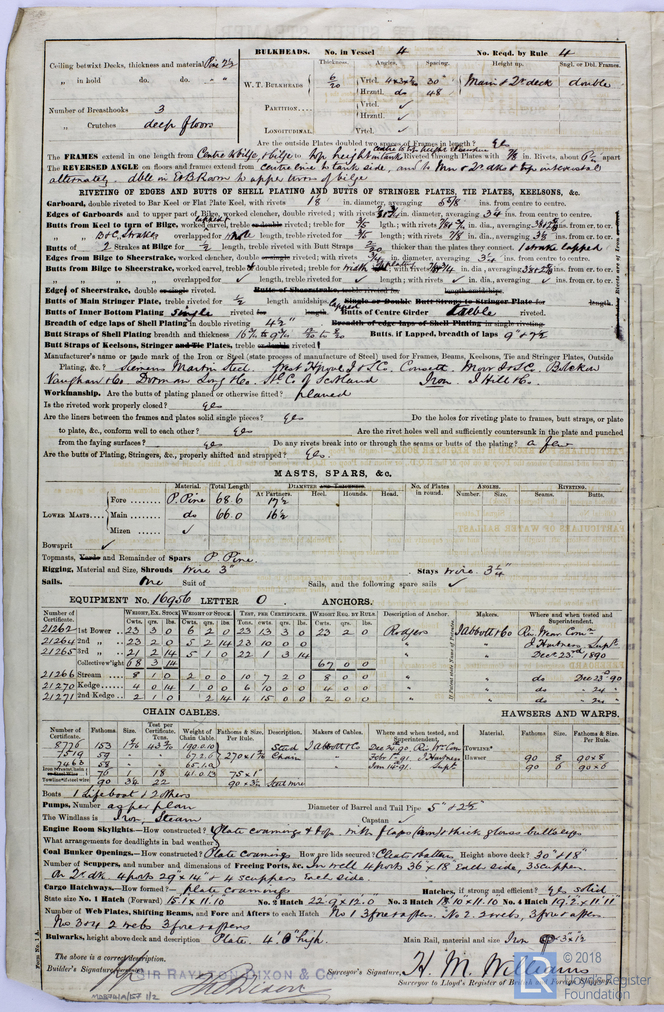 BULKHEADS. No. in Vessel 4 No. Reqd. by Rule 4
Ceiling betwixt Decks, thickness and material Pine 2½
Thickness. Angles. Spacing. Height up. Sngl. or Dbl. Frames.
„ in hold do. do. „ „
W. T. BULKHEADS 6/20 Vrtcl. 4x3x 30" Main & 2nd deck double
Hrzntl. do 48
Number of Breasthooks 3
PARTITION Vrtcl. ✓
„ Crutches deep floors
Hrzntl. ✓
LONGITUDINAL Vrtcl. ✓
Are the outside Plates doubled two spaces of Frames in length? yes
The FRAMES extend in one length from Centre to bilge, & bilge to top height in tank Riveted through Plates with 7/8 in. Rivets, about apart
The REVERSED ANGLE on floors and frames extend from centre line to tank side, and to Mn & 2nd dks & top intercostal
alternately dble in E&B Room to upper turn of bilge
RIVETING OF EDGES AND BUTTS OF SHELL PLATING AND BUTTS OF STRINGER PLATES, TIE PLATES, KEELSONS, &c.
Garboard, double riveted to Bar Keel or Flat Plate Keel, with rivets 1 8 in. diameter, averaging 5⅝ ins. from centre to centre.
Edges of Garboards and to upper part of Bilge, worked clencher, double riveted; with rivets in. diameter, averaging 3¼ ins. from centre to centre.
Butts from Keel to turn of Bilge, worked carvel, treble riveted for 3/5 lgth.; with rivets in. dia., averaging ins. from cr. to cr.
„ B&C Strakes overlapped for whole length, treble riveted for 3/5 length; with rivets 7/8 in. dia., averaging 3⅛ ins. from cr. to cr.
Butts of 2 Strakes at Bilge for ½ length, treble riveted with Butt Straps 2/20 thicker than the plates they connect. 1 strake lapped
Edges from Bilge to Sheerstrake, worked clencher, double riveted; with rivets ¾ in. diameter, averaging 3¼ ins. from centre to centre.
Butts from Bilge to Sheerstrake, worked carvel, treble & double riveted; for length; with rivets in. dia., averaging ins. from cr. to cr.
„ overlapped for ✓ length, treble riveted for ✓ length; with rivets ✓ in. dia., averaging ✓ ins. from cr. to cr.
Edges of Sheerstrake, double riveted. Butts of Sheerstrake, treble riveted for length amidships.
Butts of Main Stringer Plate, treble riveted for ½ length amidships. lapped Single or Double Butt Straps to Stringer Plate for length.
Butts of Inner Bottom Plating single riveted for length. Butts of Centre Girder treble riveted.
Breadth of edge laps of Shell Plating in double riveting 4½" Breadth of edge laps of Shell Plating in single riveting
Butt Straps of Shell Plating breadth and thickness Butts, if Lapped, breadth of laps 9" & 7½
Butt Straps of Keelsons, Stringer and Tie Plates, treble or double riveted?
Manufacturer's name or trade mark of the Iron or Steel (state process of manufacture of Steel) used for Frames, Beams, Keelsons, Tie and Stringer Plates, Outside
Plating, &c.? Siemens Martin Steel. Consett. Bolckow
Vaughan & Co. Dorman Long & Co. St. C. of Scotland Iron. J Hill & Co.
Workmanship. Are the butts of plating planed or otherwise fitted? planed
Is the riveted work properly closed? yes
Are the liners between the frames and plates solid single pieces? yes Do the holes for riveting plate to frames, butt straps, or plate
to plate, &c., conform well to each other? yes Are the rivet holes well and sufficiently countersunk in the plate and punched
from the faying surfaces? yes Do any rivets break into or through the seams or butts of the plating? a few
Are the butts of Plating, Stringers, &c., properly shifted and strapped? yes.
MASTS, SPARS, &c.
Material. Total Length DIAMETER AND THICKNESS No. of Plates in round. ANGLES. RIVETING.
At Partners. Heel. Hounds. Head. Number. Size. Seams. Butts.
LOWER MASTS Fore P. Pine 68.6 17½
Main do 66.0 16½
Mizen ✓
Bowsprit ✓
Topmasts, Yards and Remainder of Spars P. Pine.
Rigging, Material and Size, Shrouds wire 3" Stays wire. 3¼"
Sails. One Suit of Sails, and the following spare sails ✓
EQUIPMENT No. 16956 LETTER O. ANCHORS.
Number of Certificate. WEIGHT, EX. STOCK WEIGHT OF STOCK. TEST, PER CERTIFICATE. WEIGHT REQ. BY RULE. Description of Anchor. Makers. Where and when tested and Superintendent.
Cwts. qrs. lbs. Cwts. qrs. lbs. Tons. cwts. qrs. lbs. Cwts. qrs. lbs.
21262 1st Bower 23 3 0 6 2 0 23 13 3 0 23 2 0 Rodgers J Abbott & Co Riv. Wear Comn
21264 2nd „ 23 2 0 5 2 14 23 10 0 0 „ „ J Hartness Supt
21265 3rd „ 21 2 14 5 1 0 22 1 3 14 „ „ Decr 23rd 1890
Collective weight 68 3 14 67 0 0
21266 Stream 8 1 0 2 0 0 10 7 2 0 8 0 0 „ do Dec 23rd 90
21270 Kedge 4 0 14 1 0 0 6 10 0 0 4 0 0 „ do „ 24 „
21271 2nd Kedge 2 1 0 2 14 4 15 0 0 2 0 0 „ do „ „
CHAIN CABLES. HAWSERS AND WARPS.
Number of Certificate. Fathoms Size. Test per Certificate. Tons. Weight of Chain Cable. Fathoms & Size, Per Rule. Description. Makers of Cables. Where and when tested, and Superintendent. Material. Fathoms Size. Fathoms & Size, Per Rule.
8776 153 190.0.10 Steel J Abbott & Co Dec 24.90. Riv. Wr. Com TOWLINE
7519 59 67.2.6 270x1 Chain „ Feb 1-91 J Hartness Hawser 90 8 90x8
7463 58 65.1.9 „ Jan 14-91. Supt. „ 90 6 90x6
76 1 18 41.0.13 75x1"
Towline steel wire 90 3¼ 22 Steel wire
Boats 1 Lifeboat & 2 others
Pumps, Number as per plan Diameter of Barrel and Tail Pipe 5" & 2½"
The Windlass is Iron, Steam Capstan ✓
Engine Room Skylights.—How constructed? Plate coamings & top with flaps and thick glass bullseyes
What arrangements for deadlights in bad weather?
Coal Bunker Openings.—How constructed? Plate coamings How are lids secured? Cleats & battens Height above deck? 30" & 18"
Number of Scuppers, and number and dimensions of Freeing Ports, &c. In well 4 ports 36x18 Each side, 3 scuppers
On 2nd dk 4 ports 29"x14" & 4 scuppers Each side.
Cargo Hatchways.—How formed? plate coamings Hatches, if strong and efficient? yes solid
State size No. 1 Hatch (Forward) 15.1x11.10 No. 2 Hatch 22.9x12.0 No. 3 Hatch 18.10x11.10 No. 4 Hatch 19.2x11.11
Number of Web Plates, Shifting Beams, and Fore and Afters to each Hatch No 1 3 fore & afters. No 2. 2 webs, 3 fore & afters
Nos 3 & 4 2 webs 3 fore & afters
Bulwarks, height above deck and description Plate. 4'.0" high. Main Rail, material and size Iron
The above is a correct description.
Builder's Signature SIR RAYLTON DIXON & Co. Surveyor's Signature H. M. Williams
Surveyor to Lloyd's Register of British & Foreign Shipping.
Form No. 1 A.
© 2018
Lloyd's Register
Foundation
LR